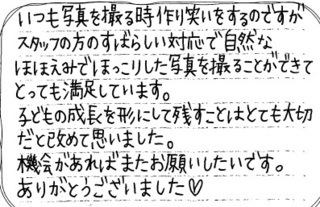 いつも写真を撮る時作り笑いをするのですが
スタッフの方のすばらしい対応で自然な
ほほえみでほっこりした写真を撮ることができて
とっても満足しています。
子どもの成長を形にして残すことはとても大切
だと改めて思いました。
機会があればまたお願いしたいです。
ありがとうございました♡